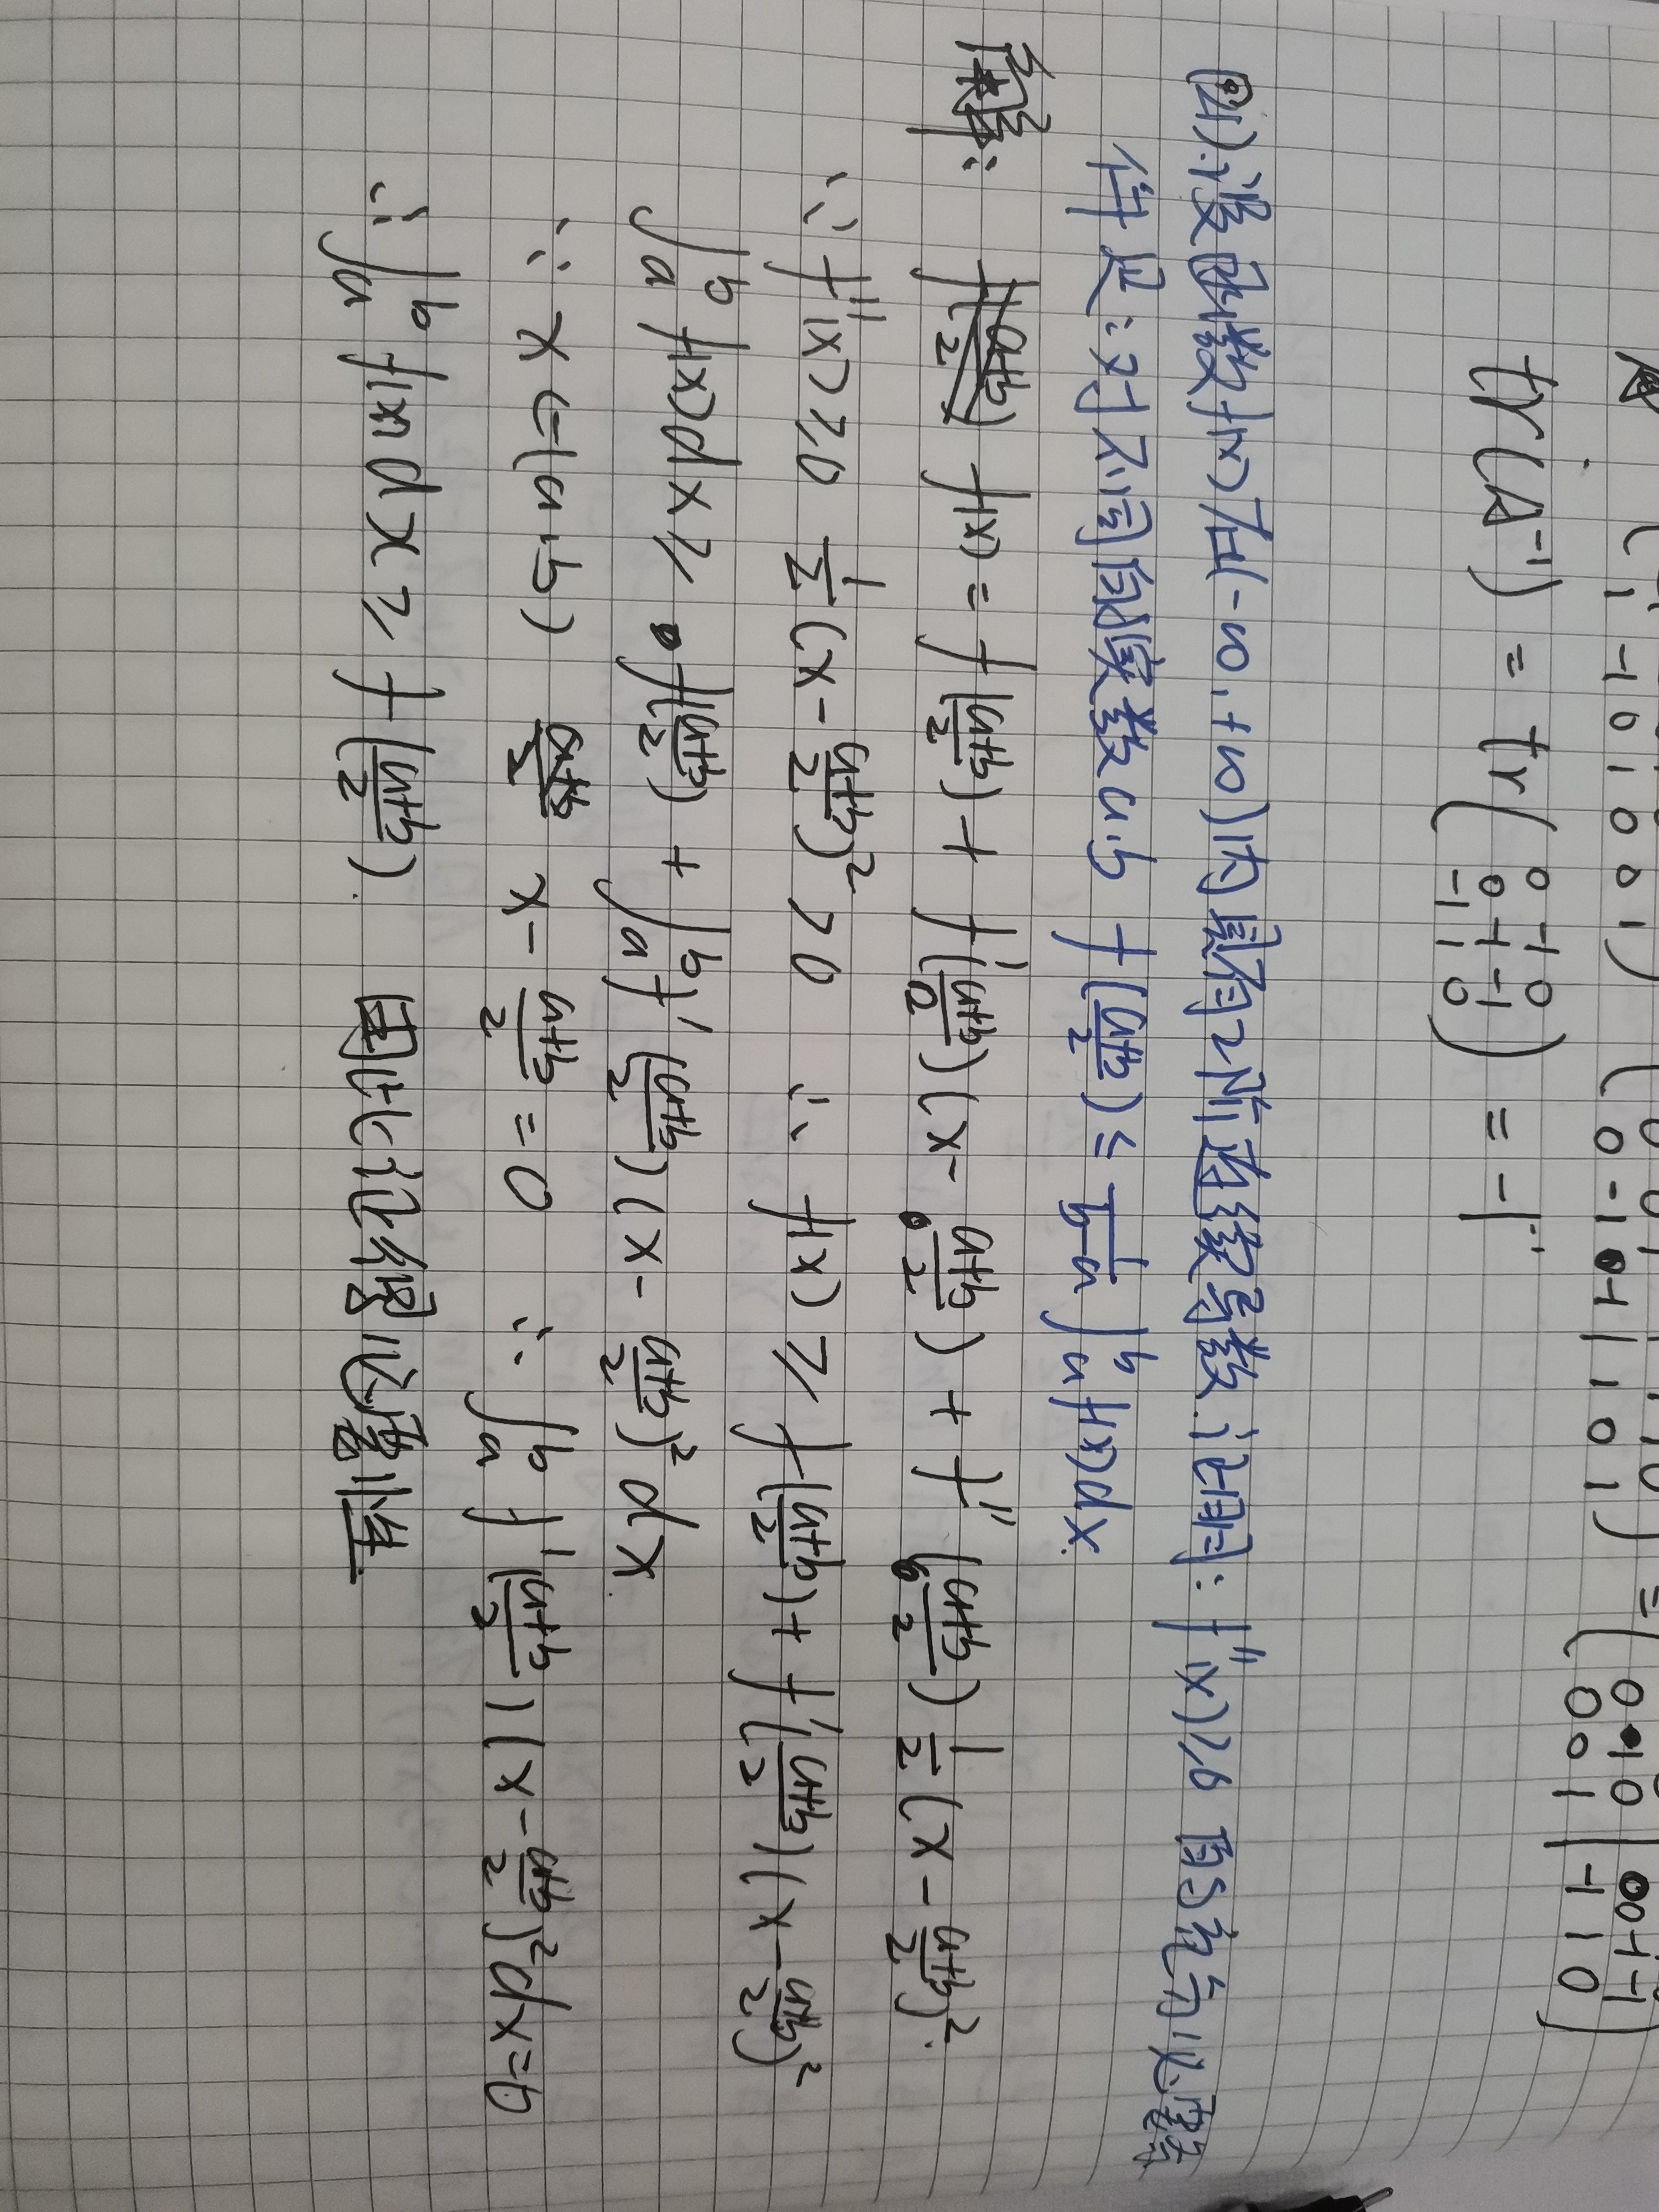 ( 1 -1 0 1 0 0 1 )
tr(A⁻¹) = tr( 0 -1 0
0 -1 -1
-1 1 0 ) = -1.
(四).设函数f(x)在(-∞,+∞)内具有2阶连续导数.证明: f''(x)≥0 的充分必要
件是:对不同的实数a.b f((a+b)/2) ≤ 1/(b-a) ∫ₐᵇ f(x)dx.
解: f(x) = f((a+b)/2) + f'((a+b)/2)(x-(a+b)/2) + f''((a+b)/2) 1/2 (x-(a+b)/2)².
∵ f''(x)≥0 1/2(x-(a+b)/2)² >0 ∴ f(x) ≥ f((a+b)/2) + f'((a+b)/2)(x-(a+b)/2)²
∫ₐᵇ f(x)dx ≥ f((a+b)/2) + ∫ₐᵇ f'((a+b)/2)(x-(a+b)/2)² dx.
∵ x∈(a.b) x-(a+b)/2 = 0 ∴ ∫ₐᵇ f'((a+b)/2)(x-(a+b)/2)² dx=0
∴ ∫ₐᵇ f(x)dx ≥ f((a+b)/2). 因此证得必要性